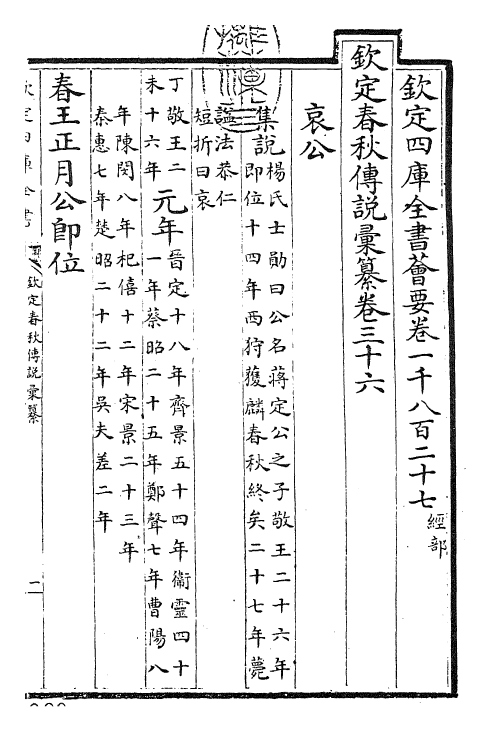 欽定四庫全書薈要卷一千八百二十七
經部
欽定春秋傳說彙纂卷三十六
哀公
集說
楊氏士勛曰公名蔣定公之子敬王二十六年
即位十四年西狩獲麟春秋終矣二十七年薨
諡法恭仁
短折曰哀
丁敬王二
未十六年
元年
晉定十八年齊景五十四年衞靈四十
一年蔡昭二十五年鄭聲七年曹陽八
年陳閔八年杞僖十二年宋景二十三年
秦惠七年楚昭二十二年吳夫差二年
春王正月公即位
欽定四庫全書
欽定春秋傳說彙纂